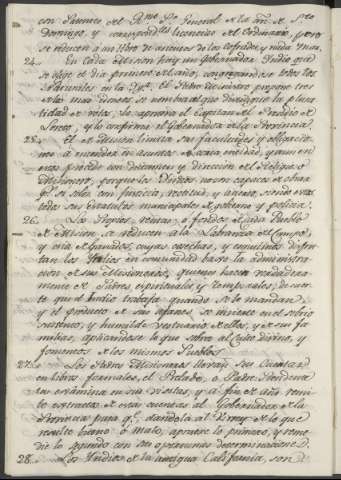 con Patente del Rmo. Pe. General de la orn. de Sto.
Domingo, y correspondtes. licencias del Ordinario, pero
se reducen á un libro de asientos de los cofrades y nada mas.
24. En cada Mision hay un Gobernador Indio que
se elige el dia primero de año, congregandose todos los
Naturales en la Yga. El Padre Ministro propone tres
de los mas idoneos, se nombra al que
de votos, la aprueva el Capitan del Presidio de
Loreto, y lo confirma el Gobernador de la Provincia.
25. El de Mision limita sus facultades y obligacio-
á en asuntos de corta entidad, y aun en-
tonces procede con dictamen y direccion del Religioso
Misionero, porque los Yndios no son capaces de obrar
pr. si solos con juicio, rectitud, y
todo sus Estatutos municipales de gobierno y policia.
26. Los Propios, rentas, ó fondos de cada Pueblo
de Mision se reducen á la Labranza del Campo,
y cria de Ganados, cuyas cosechas, y esquilmos disfru-
tan los Indios en comunidad baxo la administra-
cion de sus Misioneros, quienes hacen verdadera-
mente de Padres espirituales, y temporales; de suer-
te que el Indio trabaja quando se lo mandan,
y el producto de sus afanes se invierte en el sobrio
sustento, y humilde vestuario de ellos, y de sus fa-
milias, aplicandose lo que sobra al Culto divino, y
fomentos de los mismos Pueblos.
27. Los Padres Misioneros llevan sus Cuentas
en libros formales, el Prelado, ó Padre Presidente
las exâmina en sus visitas, y á fin de año remi-
te extracto de esta cuenta al Gobernador de la
Provincia para qe. dandola al Virrey de lo que
resulte bueno, ó malo, apruebe lo primero, y reme-
die lo segundo con sus oportunas determinaciones.
28. Los Indios de la antigua California son